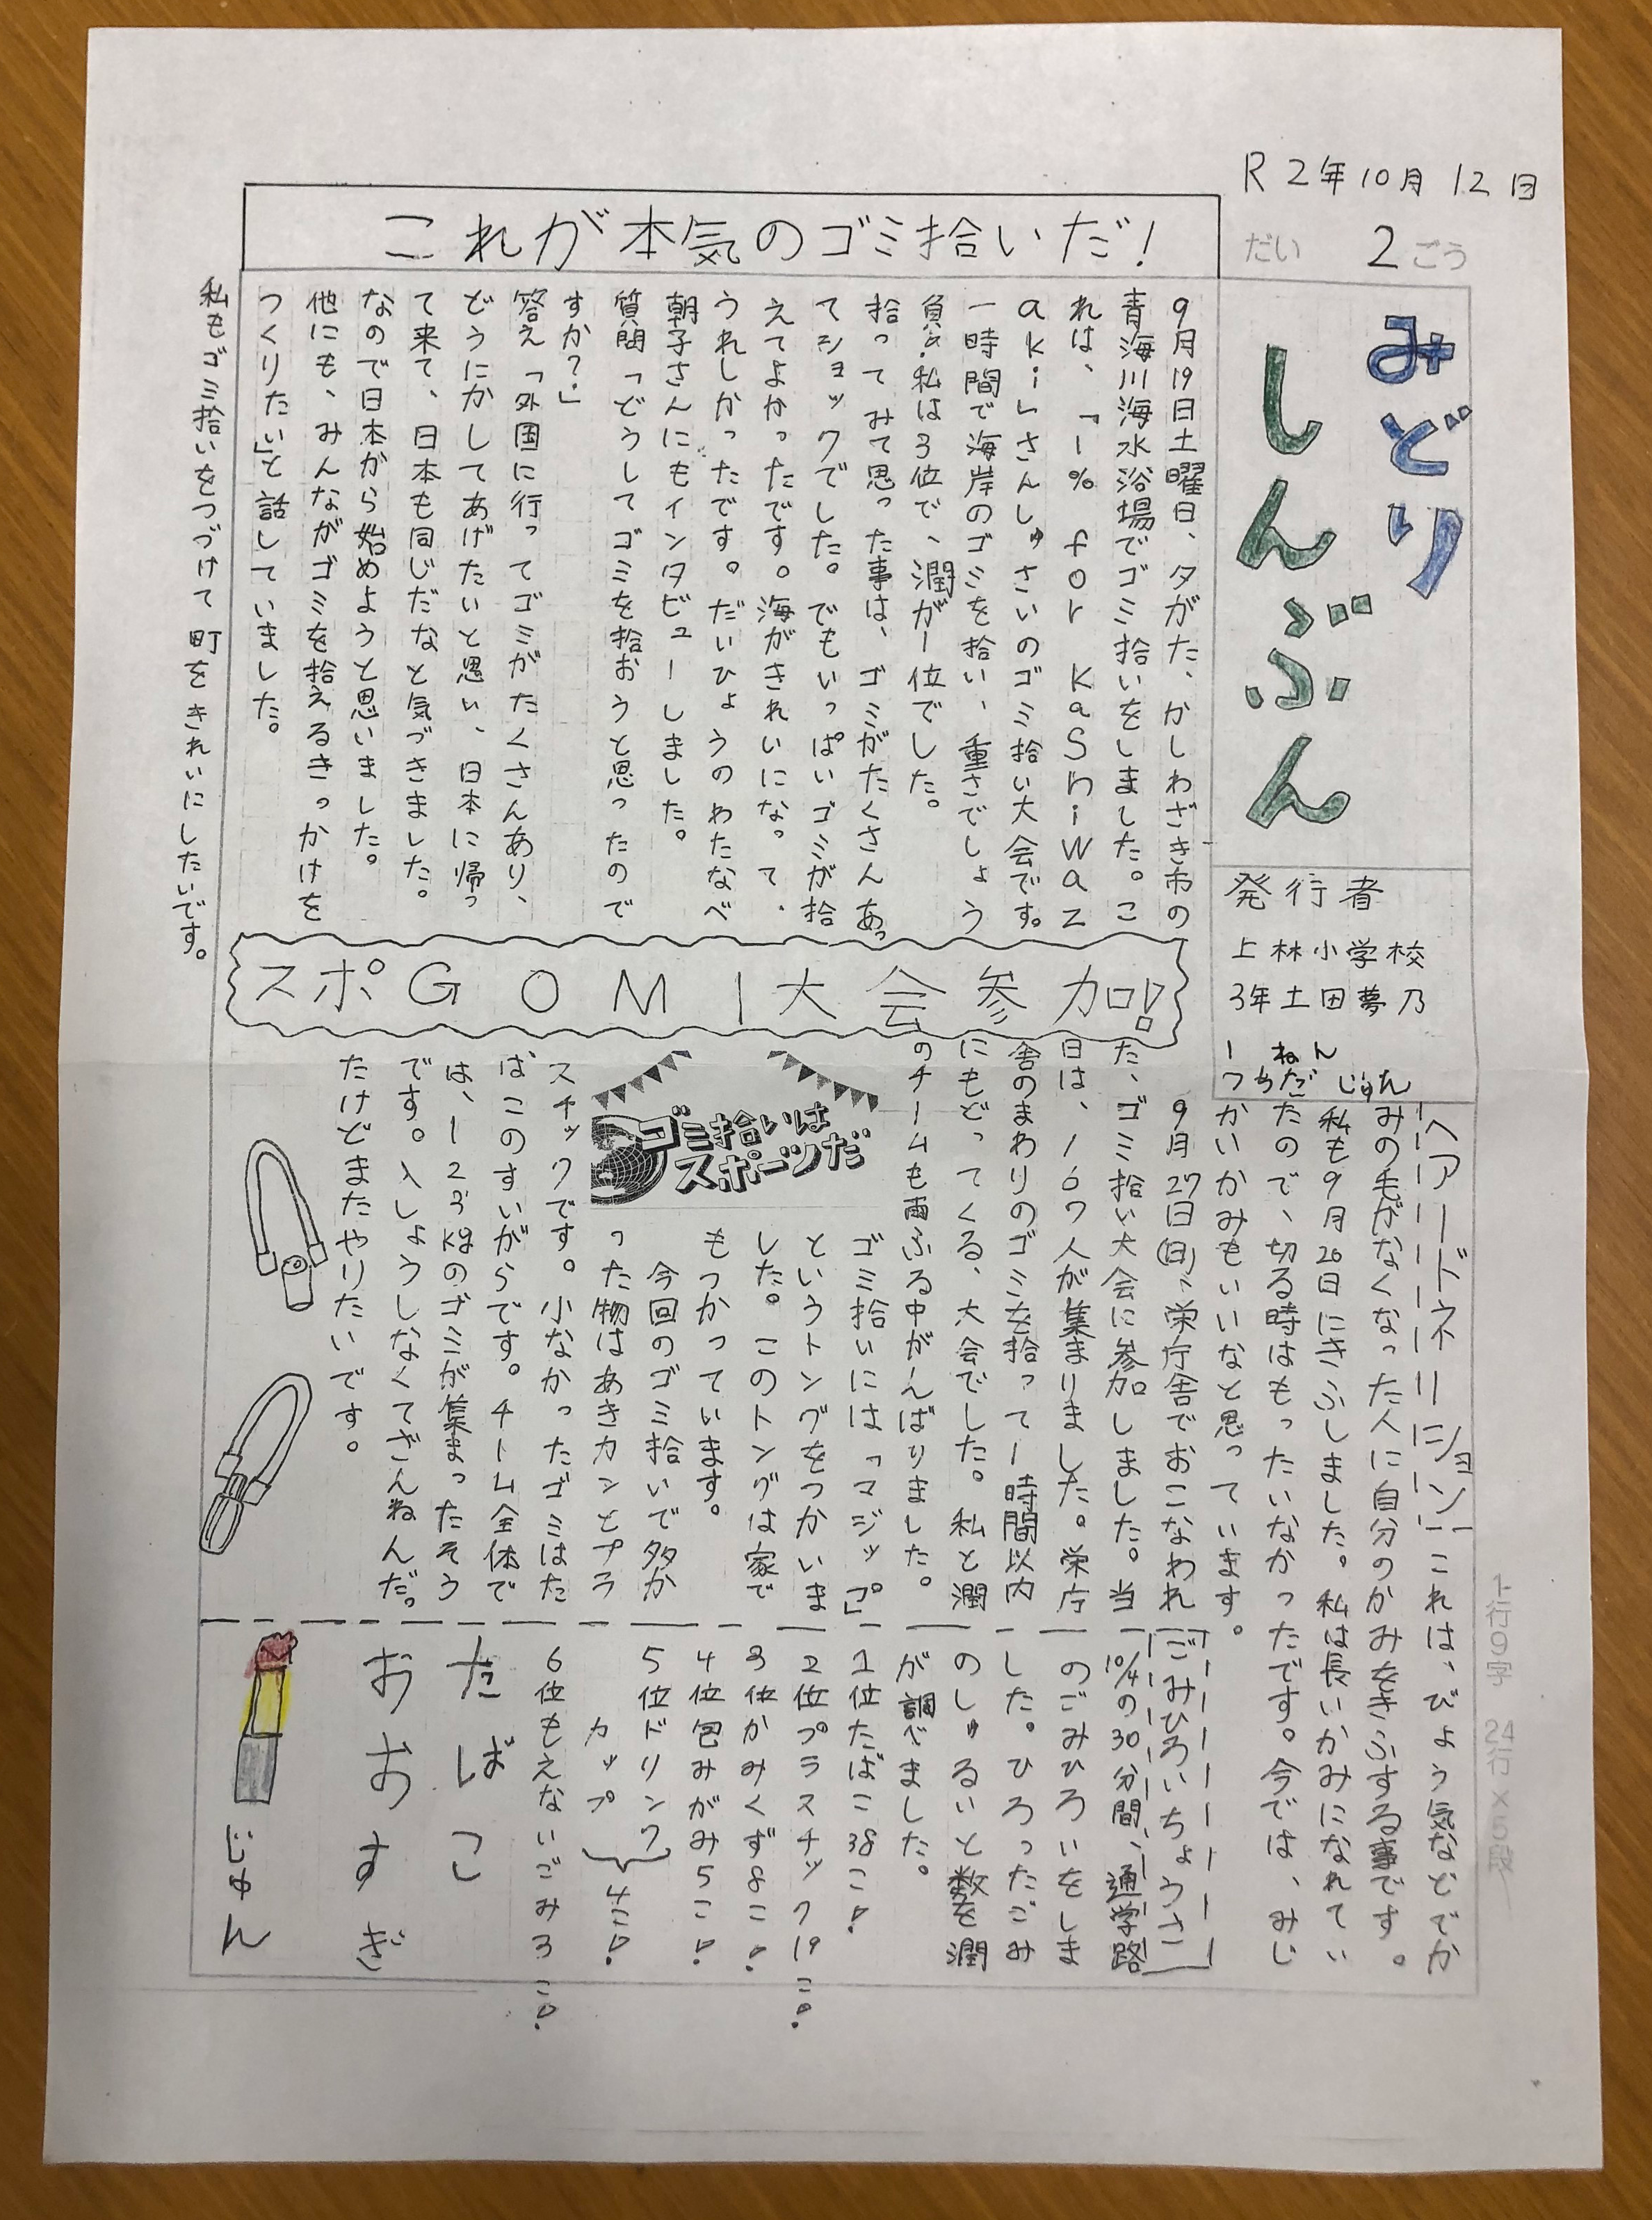 R2年10月12日
だい 2 ごう
みどり
しんぶん
発行者
上林小学校
3年土田夢乃
1ねん
つちだじゅん
これが本気のゴミ拾いだ！
9月19日土曜日、夕がた、かしわざき市の
青海川海水浴場でゴミ拾いをしました。こ
れは、「1% for Kashiwaz
aki」さんしゅさいのゴミ拾い大会です。
一時間で海岸のゴミを拾い、重さでしょう
負。私は3位で、潤が1位でした。
拾ってみて思った事は、ゴミがたくさんあっ
てショックでした。でもいっぱいゴミが拾
えてよかったです。海がきれいになって、
うれしかったです。だいひょうのわたなべ
朝子さんにもインタビューしました。
質問「どうしてゴミを拾おうと思ったので
すか？」
答え「外国に行ってゴミがたくさんあり、
どうにかしてあげたいと思い、日本に帰っ
て来て、日本も同じだなと気づきました。
なので日本から始めようと思いました。
他にも、みんながゴミを拾えるきっかけを
つくりたい」と話していました。
私もゴミ拾いをつづけて町をきれいにしたいです。
ヘアードネーション
これは、びょう気などでか
みの毛がなくなった人に自分のかみをきふする事です。
私も9月26日にきふしました。私は長いかみになれてい
たので、切る時はもったいなかったです。今では、みじ
かいかみもいいなと思っています。
スポGOMI大会参加！
9月27日(日)、栄庁舎でおこなわれ
た、ゴミ拾い大会に参加しました。当
日は、167人が集まりました。栄庁
舎のまわりのゴミを拾って1時間以内
にもどってくる、大会でした。私と潤
のチームも雨ふる中がんばりました。
ゴミ拾いは
スポーツだ
ゴミ拾いには「マジップ」
というトングをつかいま
した。このトングは家で
もつかっています。
今回のゴミ拾いで多か
った物はあきカンとプラ
スチックです。小なかったゴミはた
ばこのすいがらです。チーム全体で
は、123kgのゴミが集まったそう
です。入しょうしなくてざんねんだっ
たけどまたやりたいです。
ごみひろいちょうさ
10/4の30分間、通学路
のごみひろいをしま
した。ひろったごみ
のしゅるいと数を潤
が調べました。
1位たばこ38こ！
2位プラスチック19こ！
3位かみくず8こ！
4位包みがみ5こ！
5位ドリンク
カップ
4こ！
6位もえないごみ3こ！
たばこ
おおすぎ
じゅん
1行9字 24行×5段